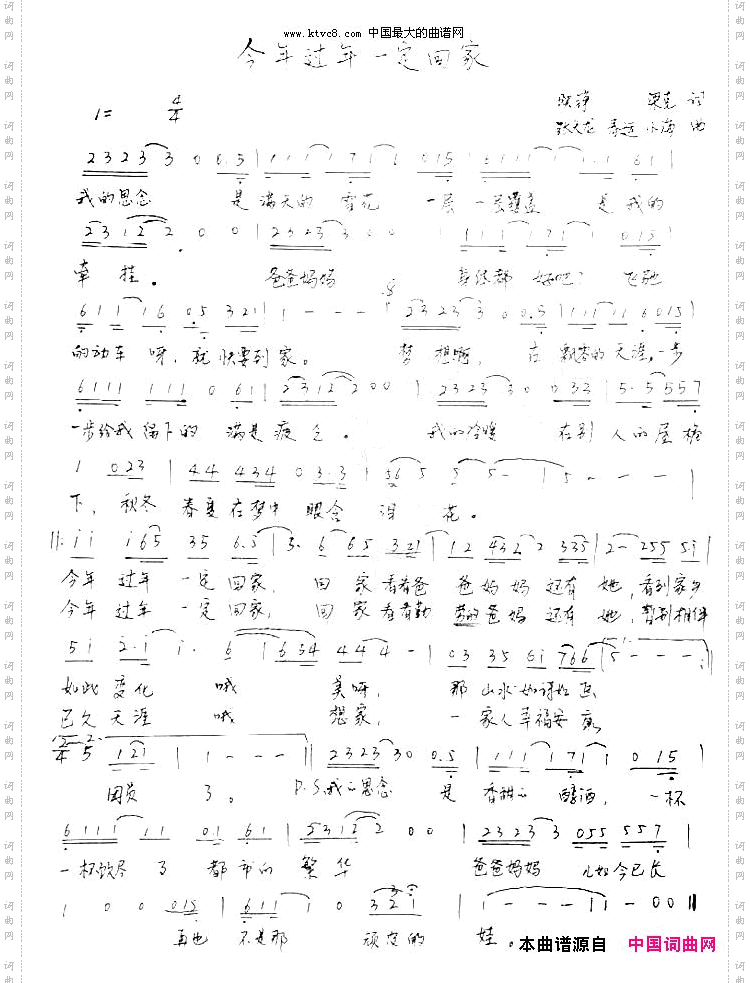 www.ktvc8.com 中国最大的曲谱网
今年过年一定回家
1= 4/4 词
小海 曲
2323 3 0 0.5 | 111 171 1 015 | 6111 1 1 1.1 61 |
我的思念 是满天的雪花 一层一层覆盖 是我的
2312 2 0 0 | 2323 3 0 0 | 111 171 1 015 |
牵挂。 爸爸妈妈 身体都好吧? 飞驰
611 16 0.5 321 | 1 - - - | 2323 3 0 0.5 | 111 11 6 015 |
的动车呀,就快要到家。 梦想啊, 在飘零的天涯,一步
6111 111 0 61 | 2312 2 0 0 | 2323 3 0 0 33 | 5.5 5557
一步给我留下的 满是疲乏。 我的冷暖 在别人的屋檐
1 023 | 44 434 0 3.3 | 56 5 5 5 - | 5 - - - |
下,秋冬春夏在梦中眼含泪花。
||: i i i65 35 6.5 | 3. 6 65 321 | 12 432 2 335 | 2 - 255 5.i |
今年过年一定回家,回家看看爸爸妈妈还有她,看到家乡
今年过年一定回家,回家看看勤劳的爸妈还有她,暂别相伴
5i 2.i i. 6 | 6634 44 4 - | 03 35 6i 766 | 5 - - - :||
如此变化 哦 美呀, 那山水如诗如画
已久天涯 哦 想家, 一家人幸福安康
2/4 5 121 | 1 | 1 - - - || 2323 3 0 0.5 | 111 171 1 015 |
团员了。 P.S.我的思念 是香甜的醇酒,一杯
6111 11 0.1 61 | 5312 2 0 0 | 2323 3 055 557 |
一杯饮尽了都市的繁华 爸爸妈妈 儿如今已长
1 0 0 015 | 611 1 0 321 | 1 - - - | 1 - 0 0 ||
再也不是那顽皮的娃。
本曲谱源自 中国词曲网
词曲网